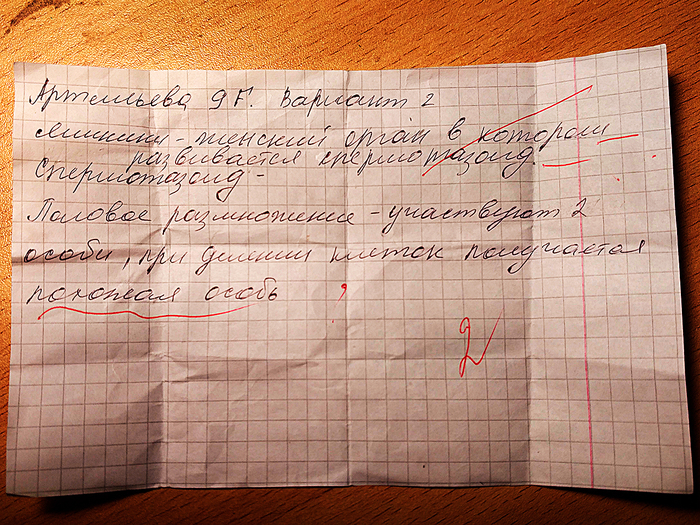 Артемьева 9 Г. Вариант 2
Яичники - женский орган в котором
развивается сперматазоид.
Сперматазоид -
Половое размножение - участвуют 2
особи, при делении клеток получается
похожая особь
2